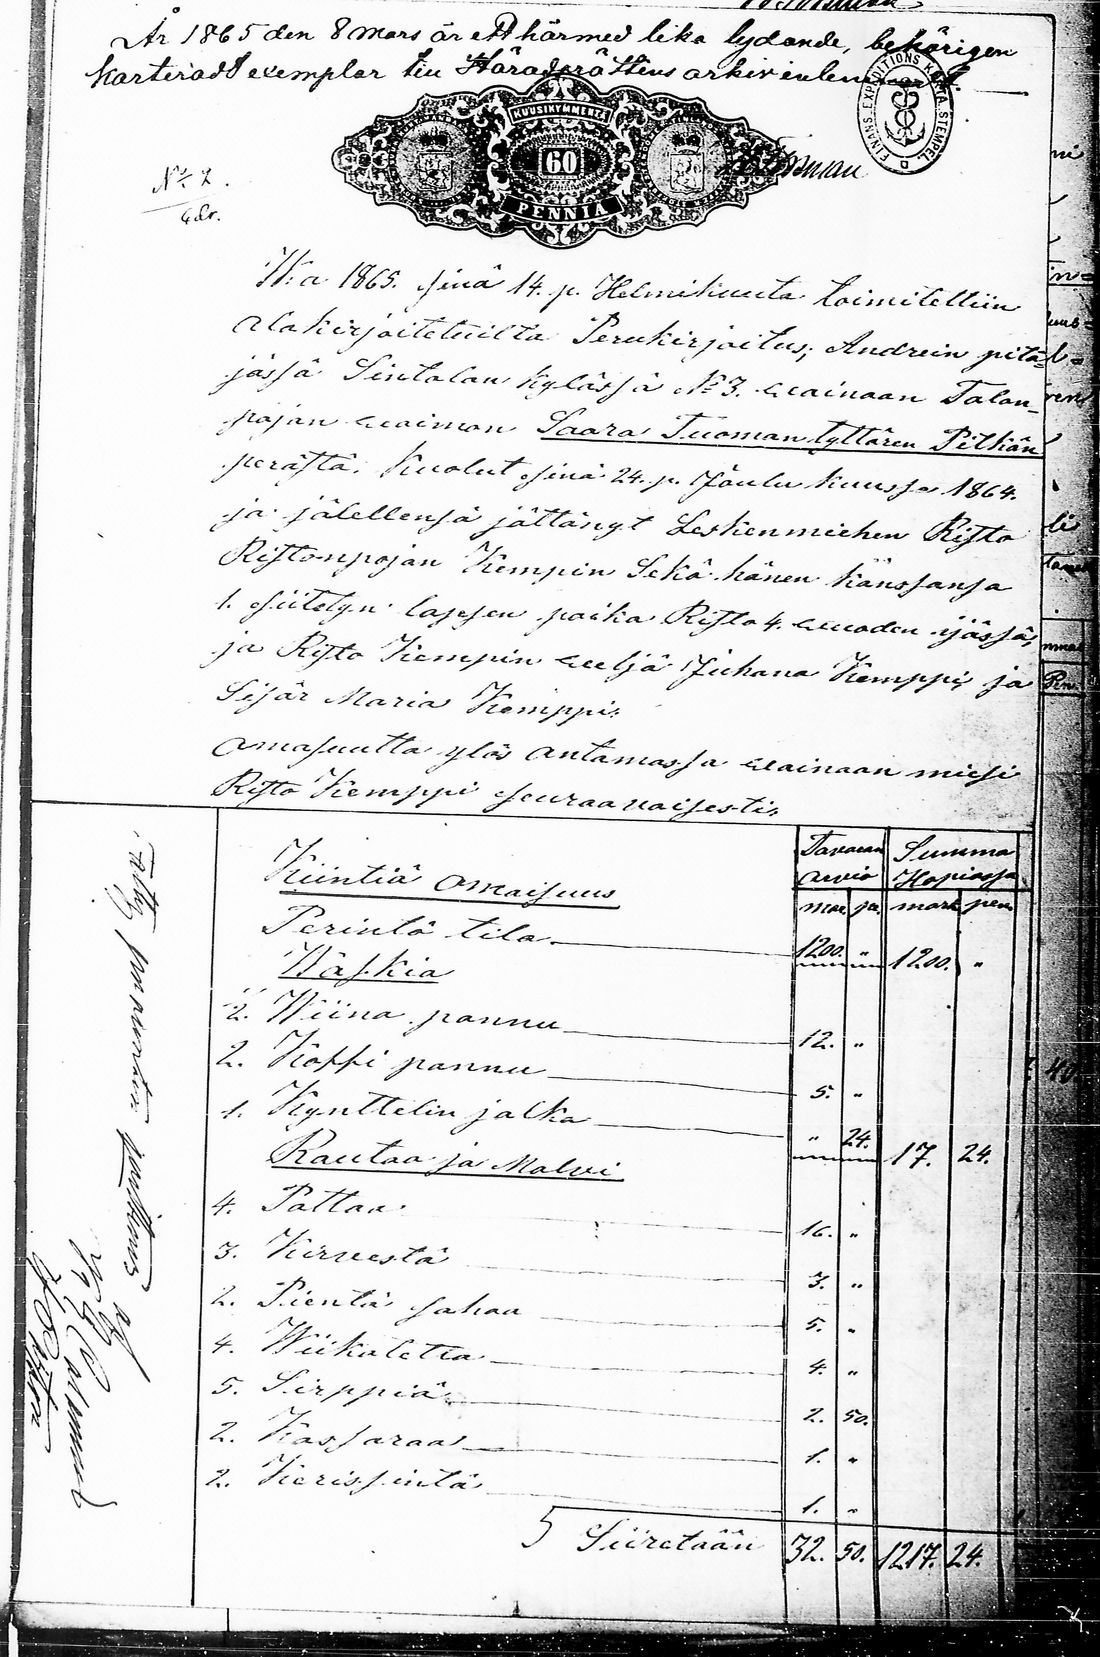 År 1865 den 8 Mars är ett härmed lika lydande, behörigen
karteradt exemplar till Häradsrättens arkiv inlemnadt.
FINANS EXPEDITIONS KARTA STEMPEL
KUUSIKYMMENTÄ
60
PENNIÄ
№ 2.
Wna 1865. sinä 14. p. Helmikuuta toimitettiin
alakirjoitetuilta Perukirjoitus; Andrein pitä-
jässä Sintolan kylässä № 3. wainaan Talon-
pojan waimon Saara Tuoman tyttären Pitkän
perästä. Kuolut sinä 24. p. Joulu kuussa 1864.
ja jälellensä jättänyt Leskenmiehen Risto
Ristonpojan Kempin Sekä hänen kanssansa
1. siitetyn lapsen poika Risto 4. wuoden ijässä,
ja Risto Kempin weljä Juhana Kemppi, ja
Sisär Maria Kemppi.
Omasuutta ylös antamassa wainaan miesi
Risto Kemppi seuraavaisesti.
Tavaran arvio Summa Hopiassa
mar. pe. mark pen.
Kiintiä Omaisuus
Perintö tila 1200. „ 1200. „
Wäskiä
2. Wiina pannu 12. „
2. Koffi pannu 5. „
1. Kynttelin jalka „ 24. 17. 24.
Rautaa ja Malvi
4. Pattaa 16. „
3. Kirvestä 3. „
2. Pientä sahaa 5. „
4. Wiikatetta 4. „
5. Sirppiä 2. 50.
2. Kassaraa 1. „
2. Kerissintä 1. „
Siiretään 32. 50. 1217. 24.